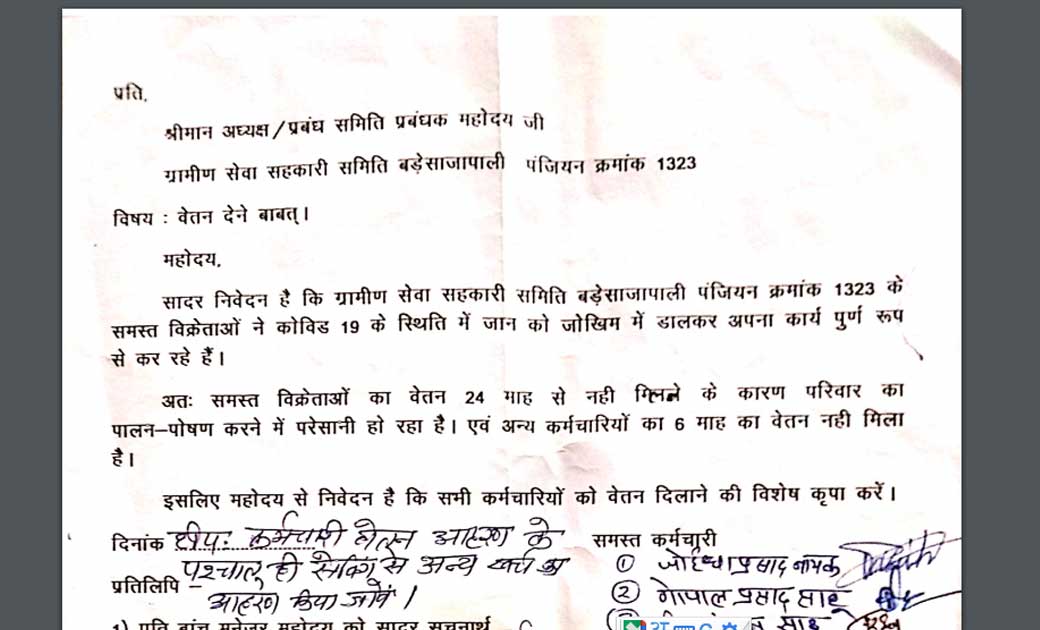 प्रति,
श्रीमान अध्यक्ष/प्रबंध समिति प्रबंधक महोदय जी
ग्रामीण सेवा सहकारी समिति बड़ेसाजापाली पंजियन क्रमांक 1323
विषय : वेतन देने बाबत्।
महोदय,
सादर निवेदन है कि ग्रामीण सेवा सहकारी समिति बड़ेसाजापाली पंजियन क्रमांक 1323 के
समस्त विक्रेताओं ने कोविड 19 के स्थिति में जान को जोखिम में डालकर अपना कार्य पुर्ण रूप
से कर रहे हैं।
अतः समस्त विक्रेताओं का वेतन 24 माह से नही मिलने के कारण परिवार का
पालन–पोषण करने में परेसानी हो रहा है। एवं अन्य कर्मचारियों का 6 माह का वेतन नही मिला
है।
इसलिए महोदय से निवेदन है कि सभी कर्मचारियों को वेतन दिलाने की विशेष कृपा करें।
दिनांक टीप: कर्मचारी वेतन आहरण के समस्त कर्मचारी
पश्चात् ही सेविंग से अन्य खर्च का ① नायक
प्रतिलिपि आहरण किया जावें। ② गोपाल प्रसाद साहू
1) प्रति ब्रांच मनेजर महोदय को सादर सूचनार्थ साहू